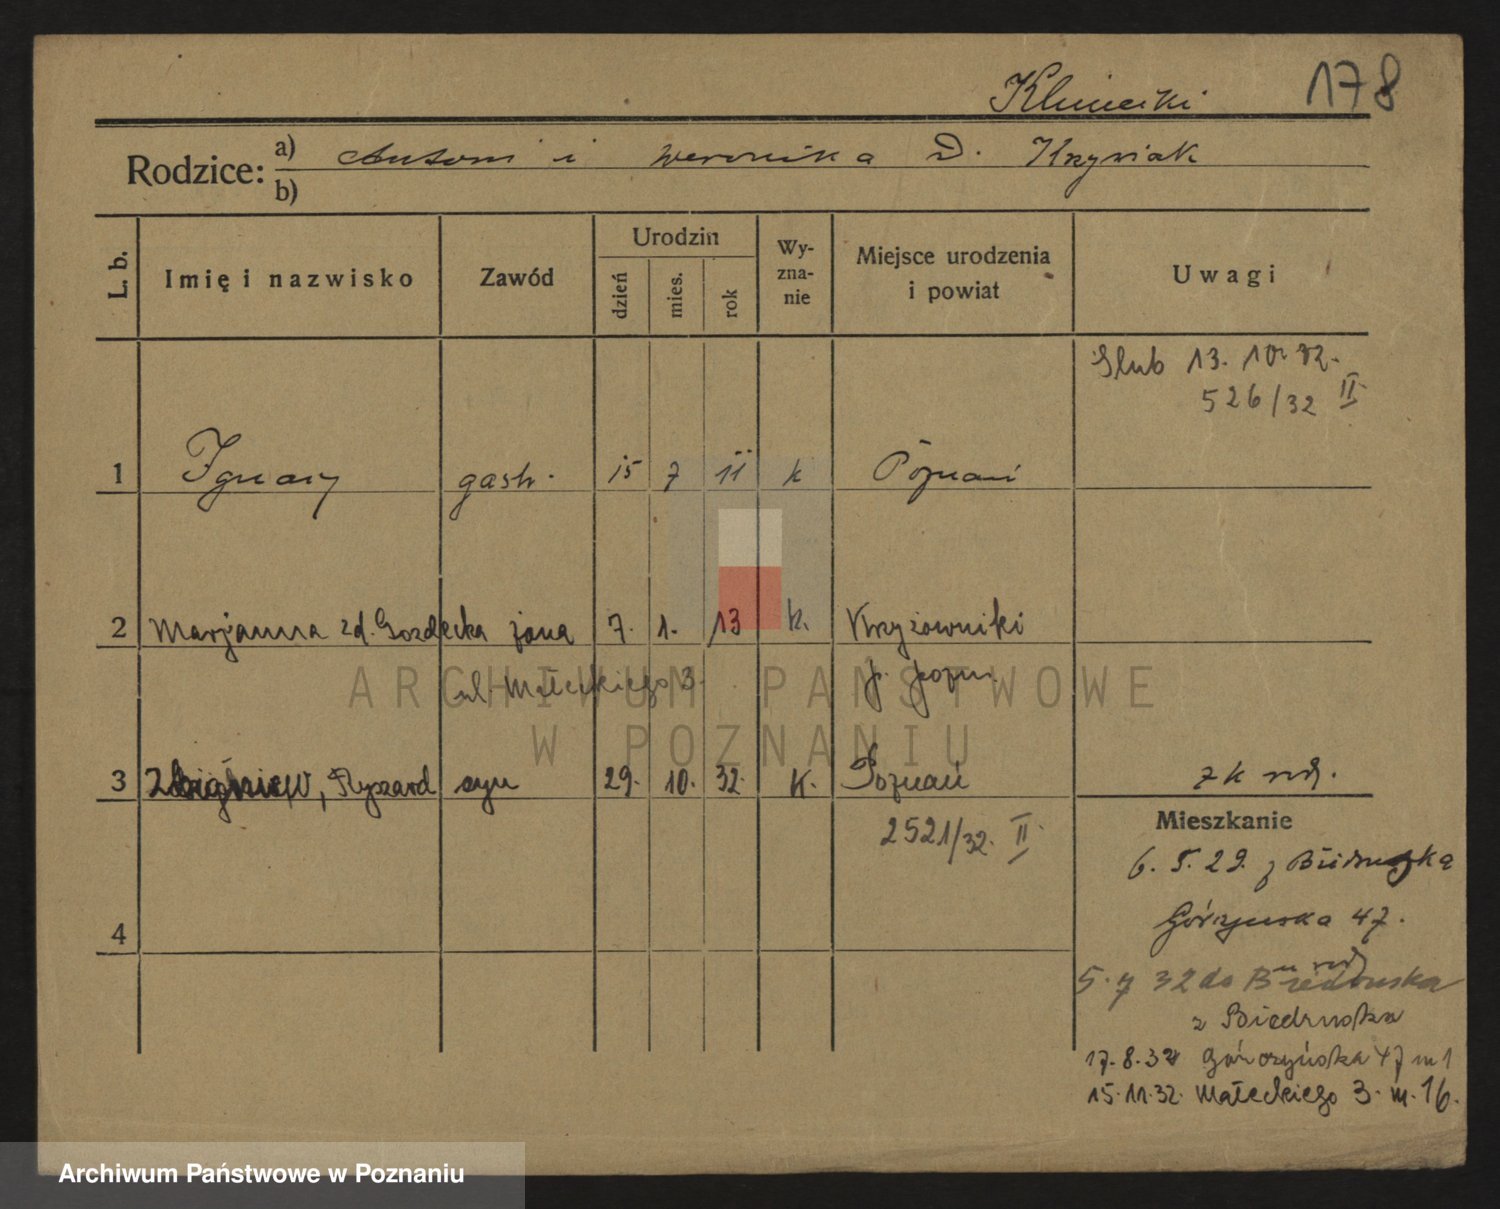 178
Rodzice: a) Antoni i Weronika D. Krzyniak
b)
L. b. Imię i nazwisko Zawód Urodzin dzień mies. rok Wy-zna-nie Miejsce urodzenia i powiat Uwagi
Slub 13. 10. 32.
526/32 II
1 Ignacy gastr. 15 7 11 k Poznań
2 Marjanna zd. Gozdecka żona 7. 1. 13 k. Krzyżowniki
ul Małeckiego 3. p. pozn.
ARCHIWUM PAŃSTWOWE
W POZNANIU
3 Zbigniew, Ryszard syn 29. 10. 32. K. Poznań
2521/32. II
Mieszkanie
6. 5. 29. z Biedruska
Górczynska 47.
4
5. 7 32 do Biedruska
z Biedruska
17. 8. 32 Górczyńska 47 m 1
15. 11. 32. Małeckiego 3. m. 16.
Archiwum Państwowe w Poznaniu